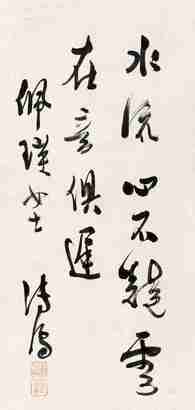 水流心不競雲
在意俱遲
佩璞女士